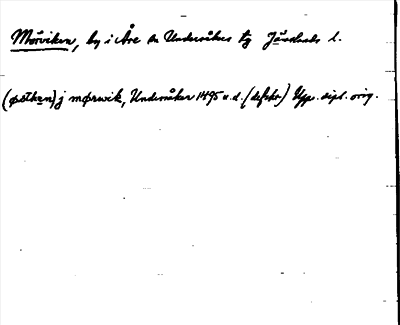 Mörviken, by i Åre sn Undersåkers tg Jämtlands l.
(østhen) j mørwik, Undersåker 1495 u.d. (defekt) Upp. dipl. orig.